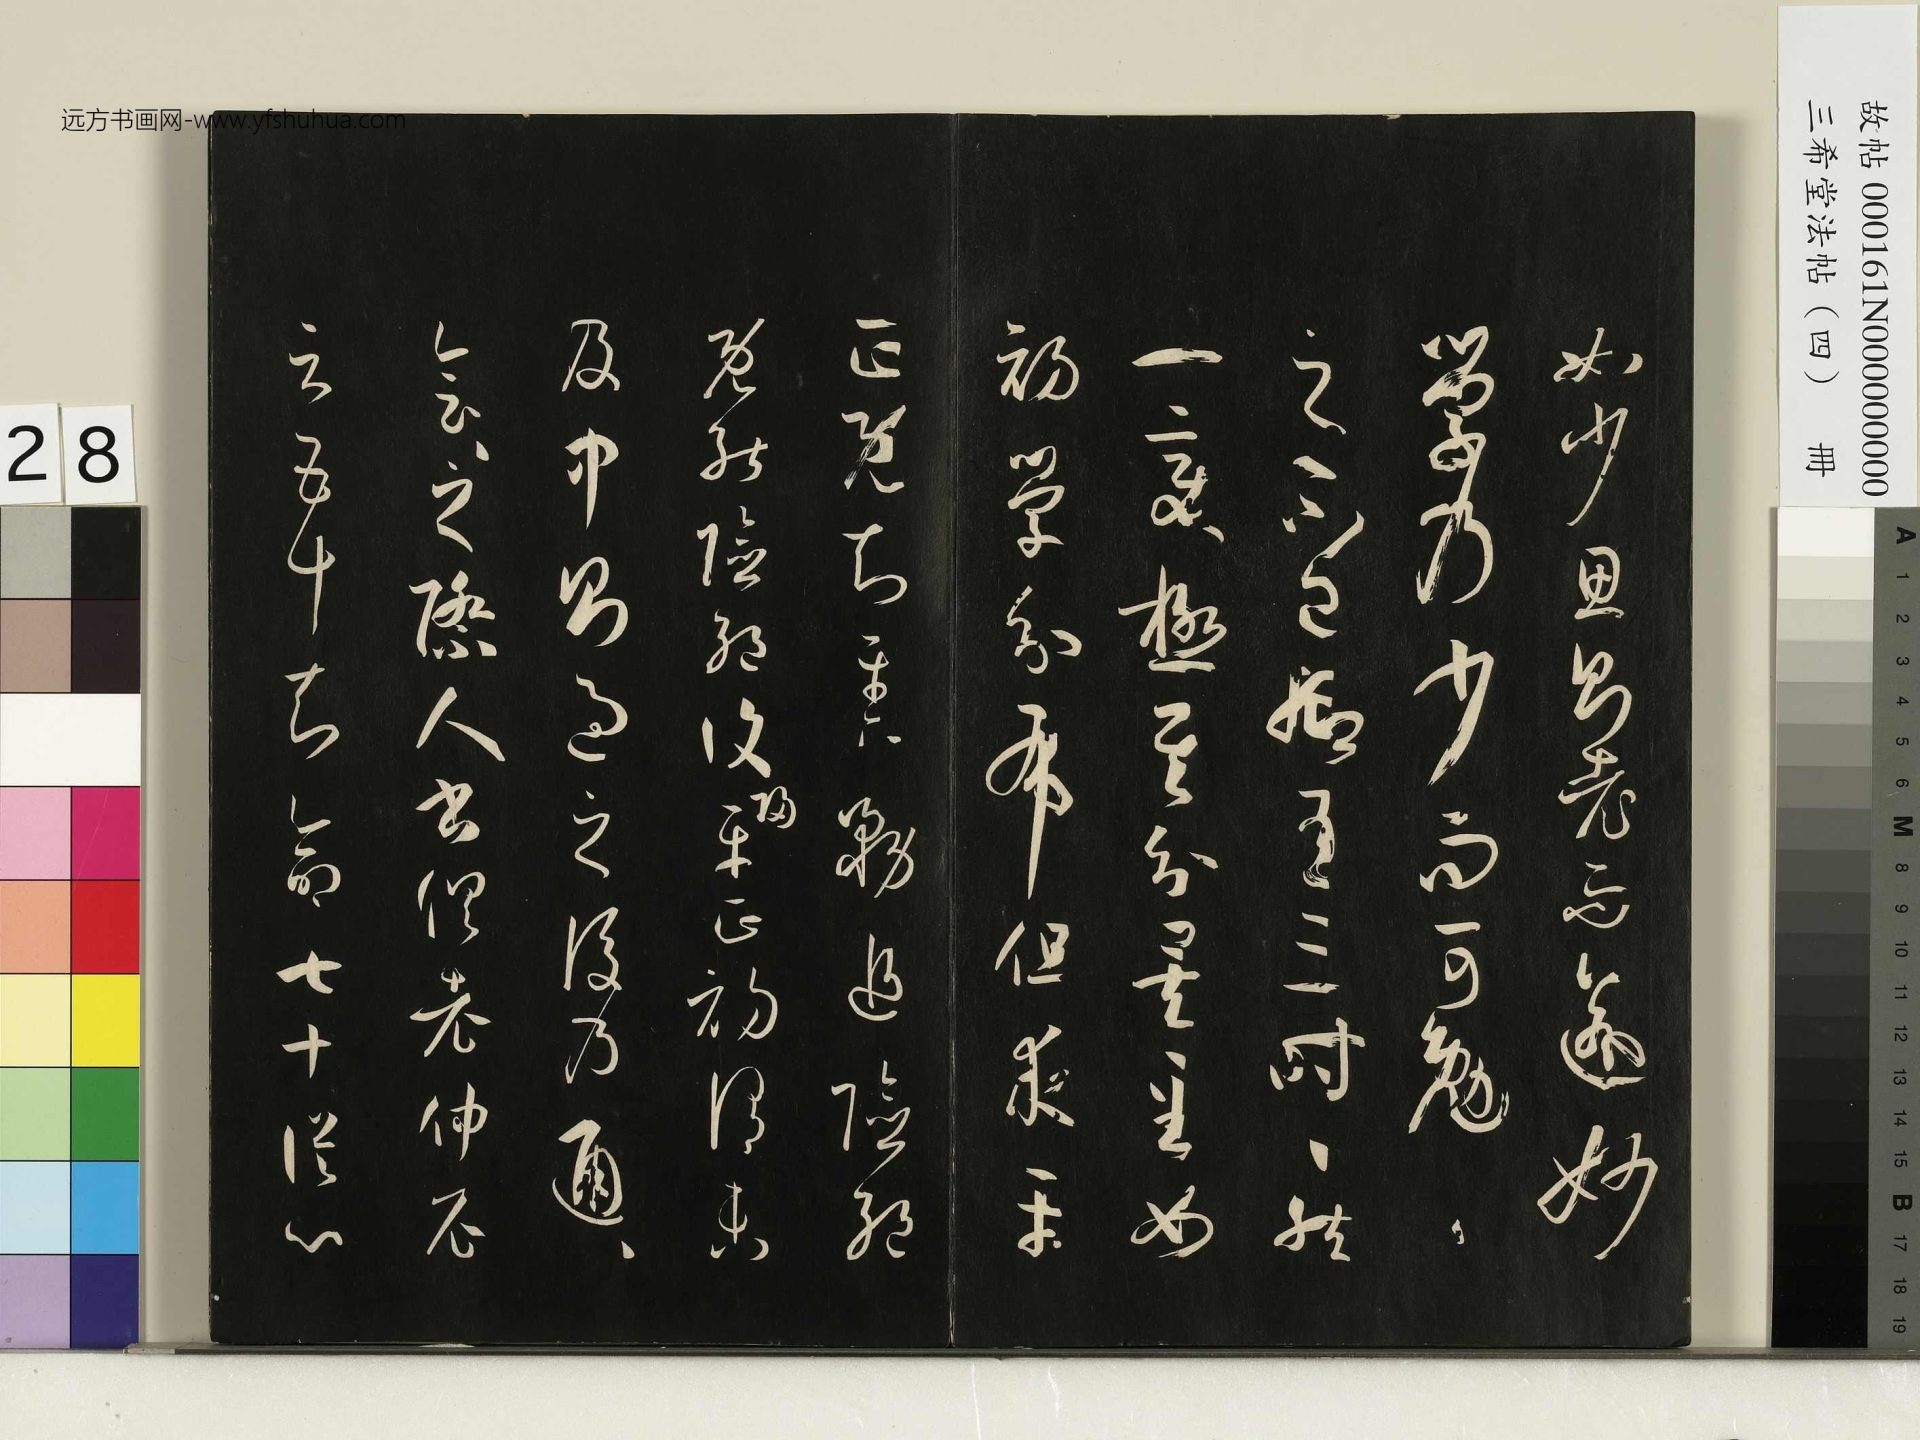 远方书画网-www.yfshuhua.com
故帖 000161N000000000
三希堂法帖（四） 冊
28
如少思則老而逾妙
學乃少而可勉々
之不已抑有三時々然
一變極其分矣至如
初學分布但求平
正既知平正務追險絕
既能險絕復歸平正初謂未
及中則過之後乃通々
會々之際人書俱老仲尼
云五十知命七十從心
A 1 2 3 4 5 6 M 8 9 10 11 12 13 14 15 B 17 18 19